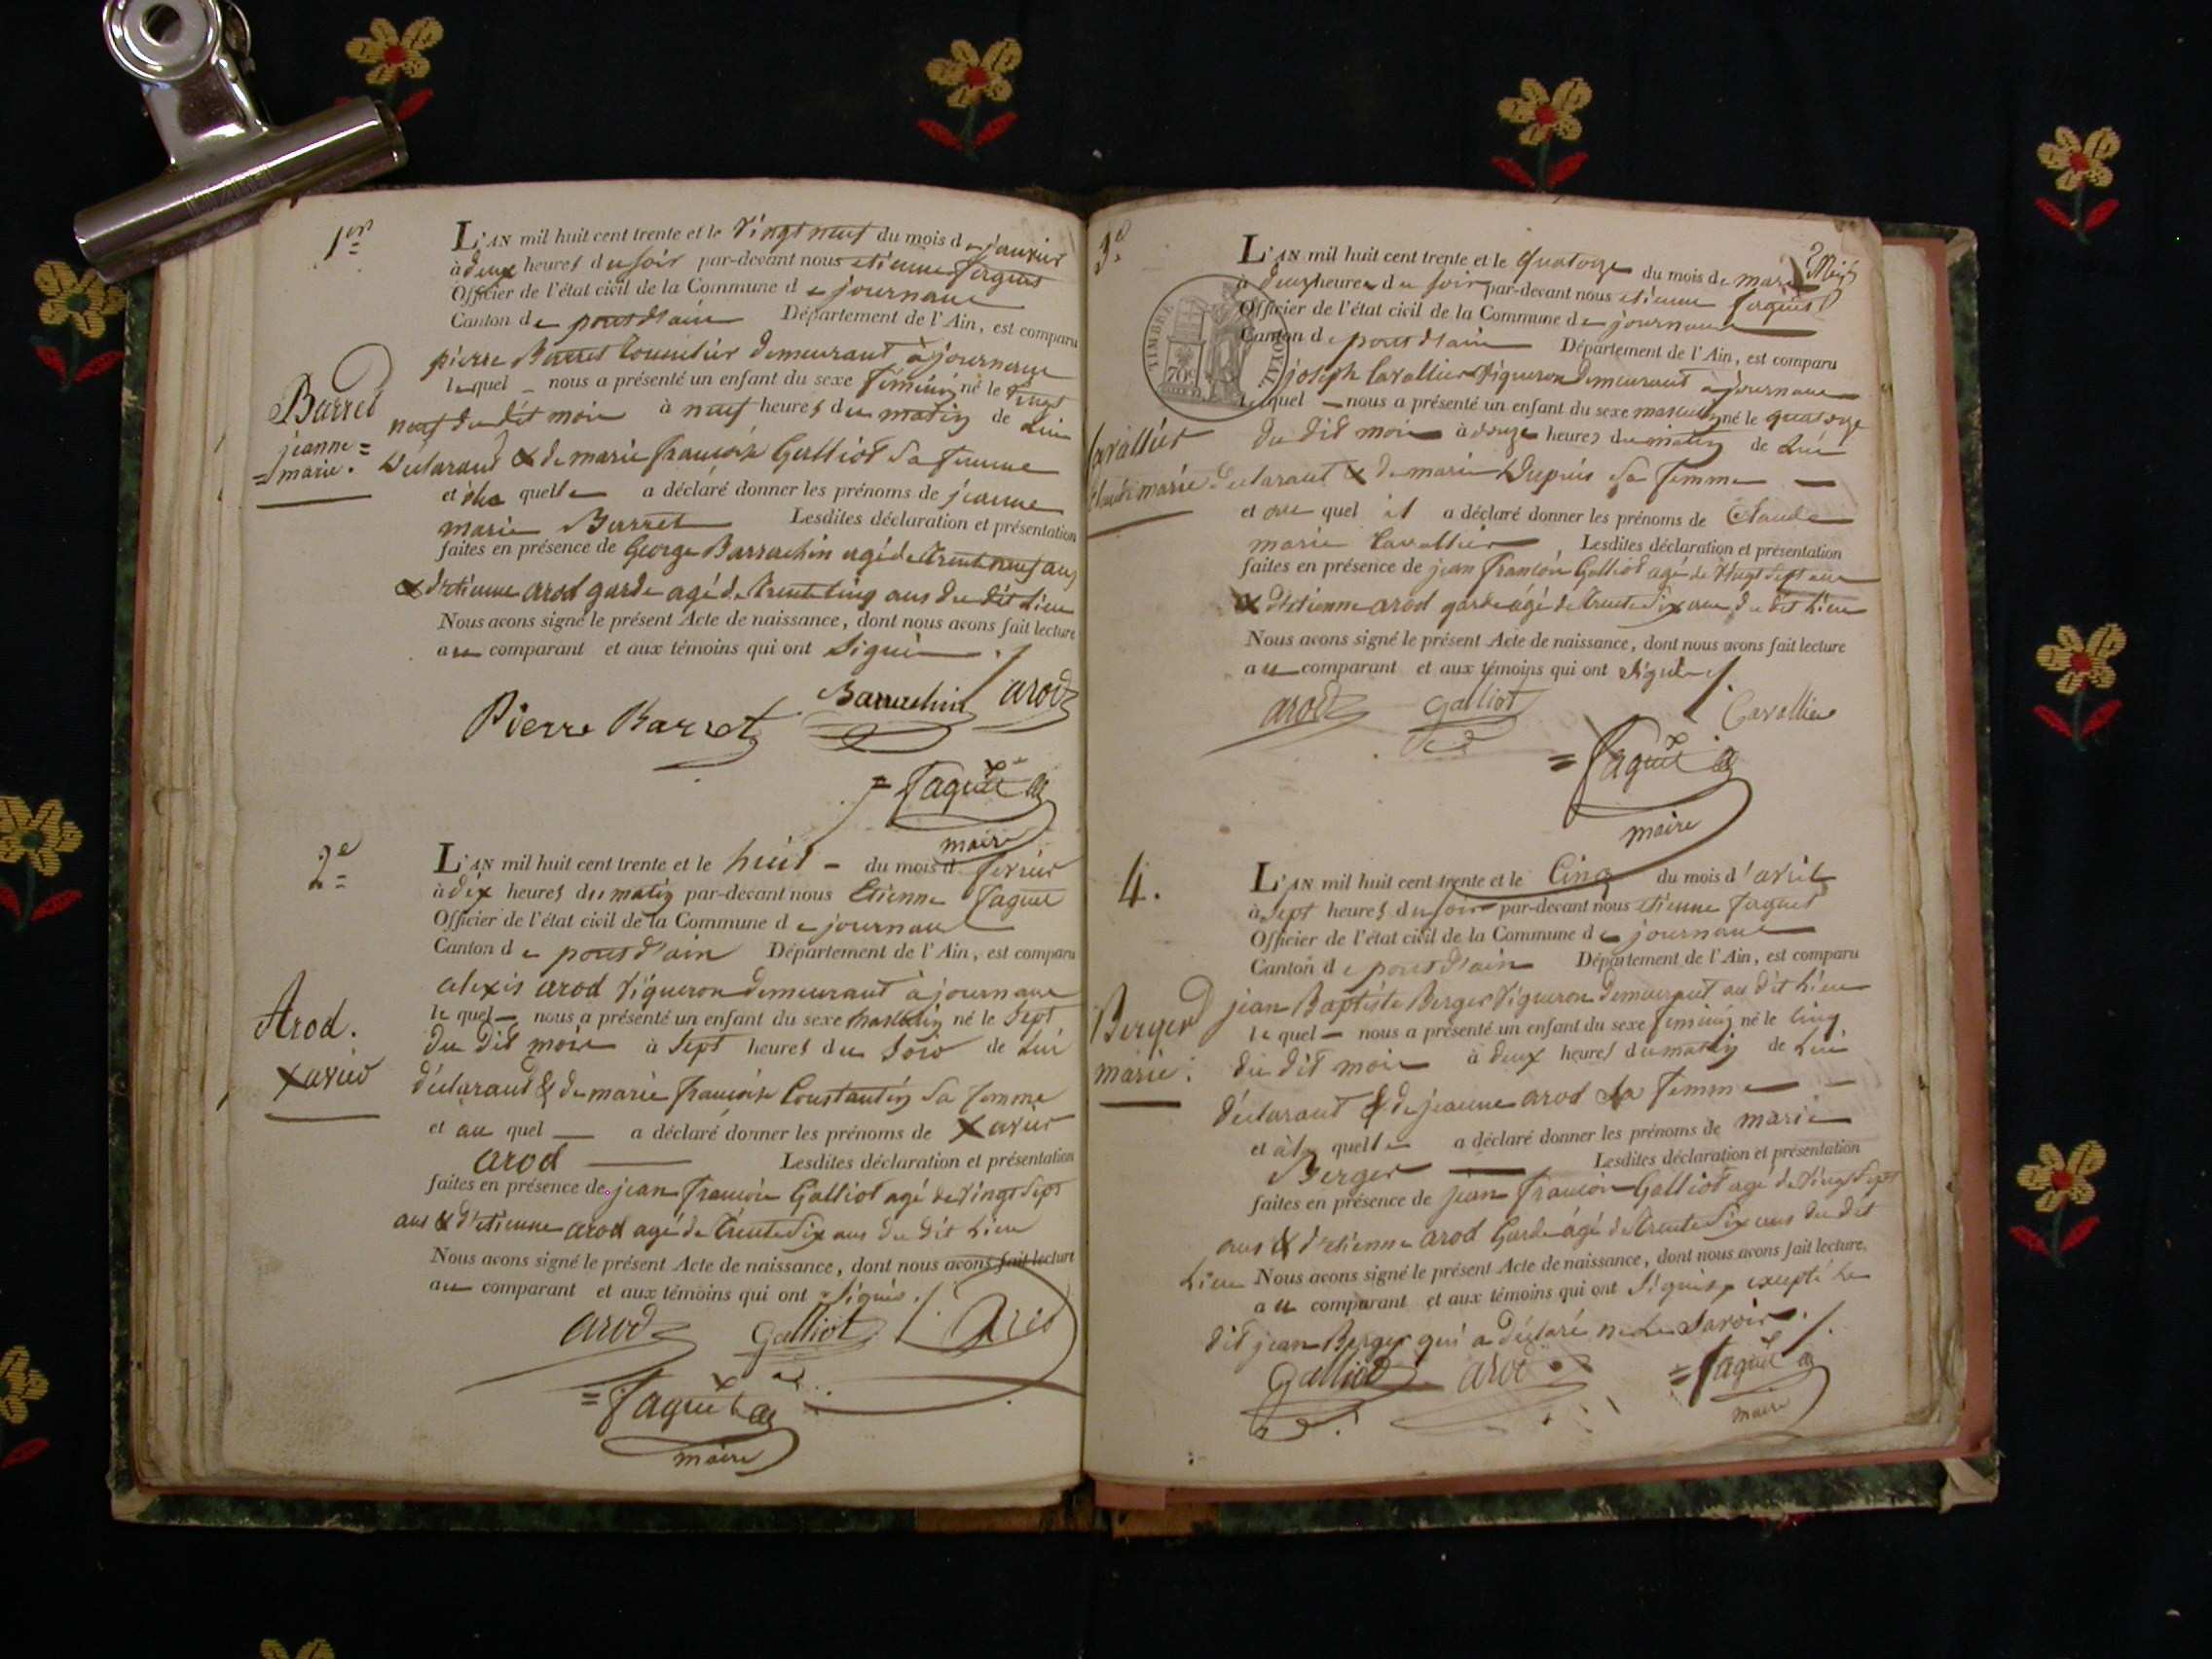 1er
L'AN mil huit cent trente et le vingt neuf du mois de janvier
à deux heures du soir par-devant nous etienne faguet
Officier de l'état civil de la Commune de journans
Canton de pont d'ain Département de l'Ain, est comparu
pierre Barret demeurant à journans
lequel nous a présenté un enfant du sexe féminin né le vingt
neuf du dit mois à neuf heures du matin de lui
Barret
jeanne =
= marie.
déclarant & de marie françoise Galliot sa femme
et à la quelle a déclaré donner les prénoms de jeanne
marie Barret Lesdites déclaration et présentation
faites en présence de George Barrachin agé de trente neuf ans
& d'etienne arod garde agé de trente cinq ans du dit lieu
Nous avons signé le présent Acte de naissance, dont nous avons fait lecture
au comparant et aux témoins qui ont signé
Pierre Barret Barrachin arod
= faguet
maire
2e
L'AN mil huit cent trente et le huit du mois d fevrier
à dix heures du matin par-devant nous Etienne faguet
Officier de l'état civil de la Commune de journans
Canton de pont d'ain Département de l'Ain, est comparu
alexis arod vigneron demeurant à journans
le quel nous a présenté un enfant du sexe masculin né le sept
du dit mois à sept heures du soir de lui
Arod.
xavier
déclarant & de marie françoise Constantin sa femme
et au quel a déclaré donner les prénoms de xavier
arod Lesdites déclaration et présentation
faites en présence de jean françois Galliot agé de vingt sept
ans & d'etienne arod agé de trente six ans du dit lieu
Nous avons signé le présent Acte de naissance, dont nous avons fait lecture
au comparant et aux témoins qui ont signés.
arod galliot
= faguet
maire
3e
L'AN mil huit cent trente et le quatorze du mois de mars
à deux heures du soir par-devant nous etienne faguet
Officier de l'état civil de la Commune de journans
Canton de pont d'ain Département de l'Ain, est comparu
TIMBRE ROYAL
70c
joseph Cavallier vigneron demeurant à journans
lequel nous a présenté un enfant du sexe masculin né le quatorze
du dit mois à douze heures du matin de lui
Cavallier
Claude marie
déclarant & de marie Dupuis sa femme
et au quel il a déclaré donner les prénoms de Claude
marie Cavallier Lesdites déclaration et présentation
faites en présence de jean françois Galliot agé de vingt sept ans
& d'etienne arod garde agé de trente six ans du dit lieu
Nous avons signé le présent Acte de naissance, dont nous avons fait lecture
au comparant et aux témoins qui ont signé
arod galliot Cavallier
= faguet
maire
4.
L'AN mil huit cent trente et le Cinq du mois d'avril
à sept heures du soir par-devant nous etienne faguet
Officier de l'état civil de la Commune de journans
Canton de pont d'ain Département de l'Ain, est comparu
jean Baptiste Berger vigneron demeurant au dit lieu
le quel nous a présenté un enfant du sexe féminin né le cinq
du dit mois à deux heures du matin de lui
Berger
marie.
déclarant & de jeanne arod sa femme
et à la quelle a déclaré donner les prénoms de marie
Berger Lesdites déclaration et présentation
faites en présence de jean françois Galliot agé de vingt sept
ans & d'etienne arod Garde agé de trente six ans du dit
lieu Nous avons signé le présent Acte de naissance, dont nous avons fait lecture,
au comparant et aux témoins qui ont signés, excepté le
dit jean Berger qui a déclaré ne le savoir.
Galliod arod = faguet
maire